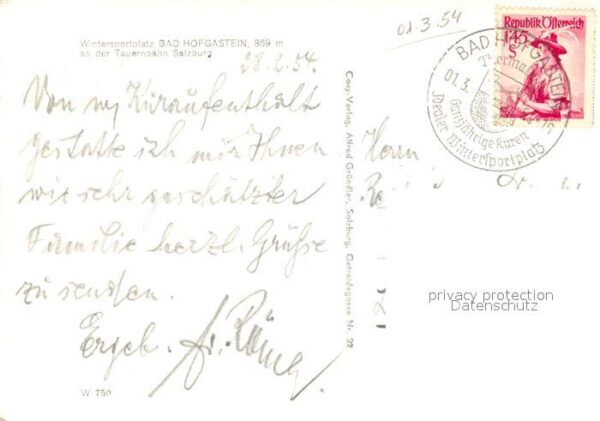 Wintersportplatz BAD HOFGASTEIN, 869 m
an der Tauernbahn Salzburg
28.2.54.
Von m/ Kuraufenthalt
gestatte ich mir Ihnen
wie sehr geschätzter
Familie herzl. Grüße
zu senden.
Ergeb.
W 750
Cosy-Verlag Alfred Gründler, Salzburg, Getreidegasse Nr. 22
01.3.54
Republik Österreich
1.45
S
BAD HOFGASTEIN
Thermal
01.3.
Ganzjährige Kuren
Idealer Wintersportplatz
Herrn
privacy protection
Datenschutz